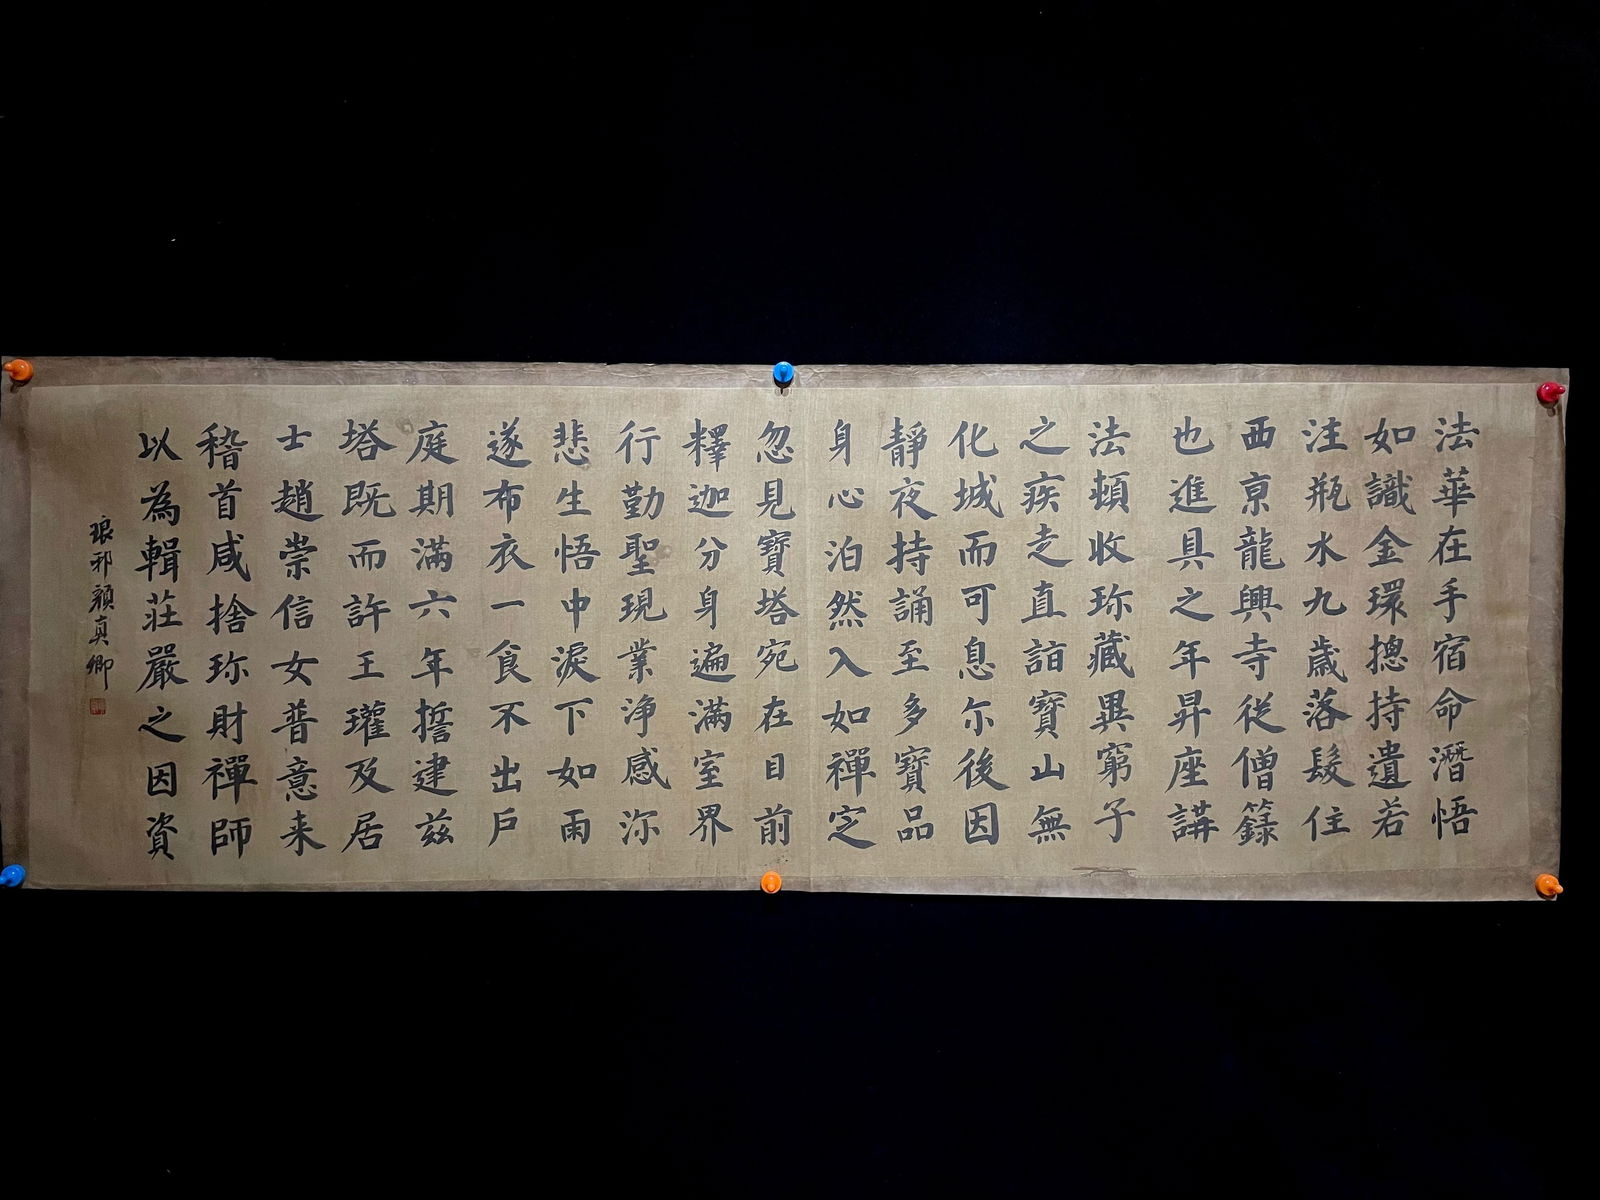 法華在手宿命潛悟
如識金環摠持遺若
注瓶水九歲落髮住
西京龍興寺從僧籙
也進具之年昇座講
法頓收珎藏異窮子
之疾走直詣寶山無
化城而可息尓後因
靜夜持誦至多寶品
身心泊然入如禪定
忽見寶塔宛在目前
釋迦分身遍滿室界
行勤聖現業淨感深
悲生悟中淚下如雨
遂布衣一食不出戶
庭期滿六年誓建茲
塔既而許王瓘及居
士趙崇信女普意来
稽首咸捨珎財禪師
以為輯莊嚴之因資
琅邪顏真卿